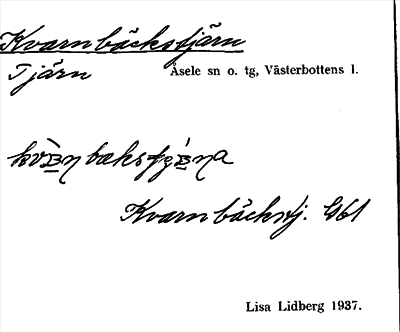 Kvarnbäckstjärn
Tjärn Åsele sn o. tg, Västerbottens l.
Kvarnbäckstj. G61
Lisa Lidberg 1937.